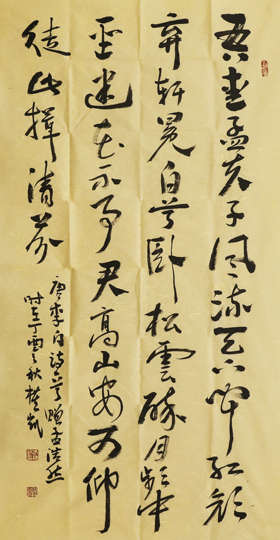 吾爱孟夫子风流天下闻红颜
弃轩冕白首卧松雲醉月频中
圣迷花不事君高山安可仰
徒此揖清芬
唐李白诗一首赠孟浩然
时在丁酉之秋